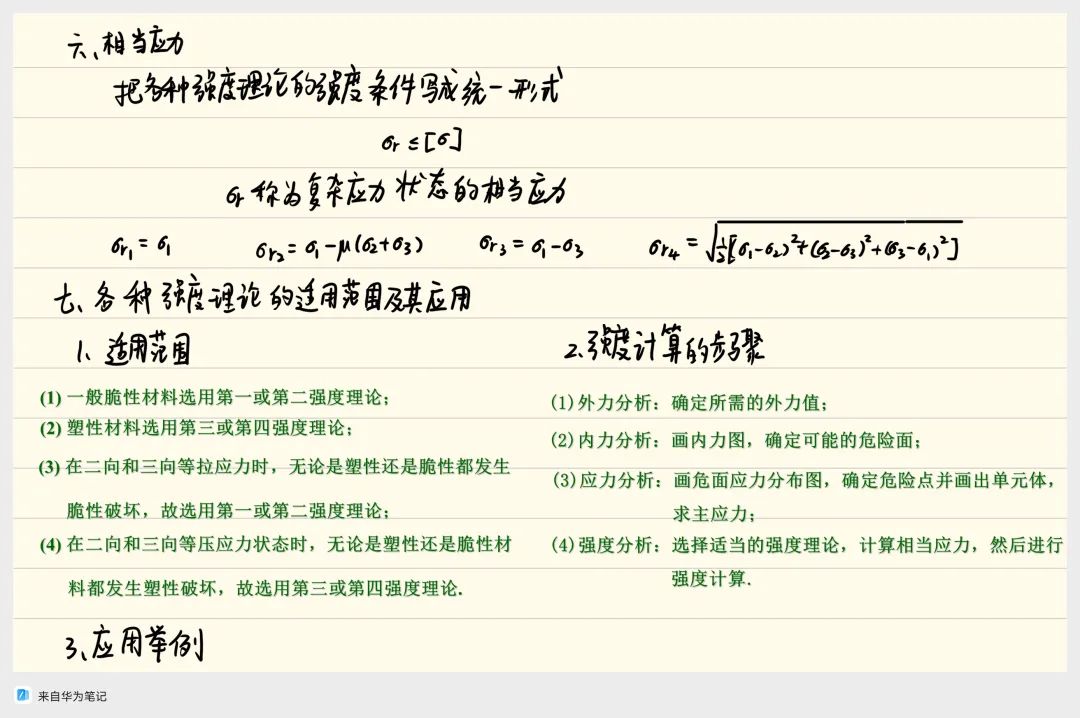 六、相当应力
把各种强度理论的强度条件写成统一形式
σr ≤ [σ]
σr 称为复杂应力状态的相当应力
σr₁ = σ₁ σr₂ = σ₁-μ(σ₂+σ₃) σr₃ = σ₁-σ₃ σr₄ = √½[(σ₁-σ₂)²+(σ₂-σ₃)²+(σ₃-σ₁)²]
七、各种强度理论的适用范围及其应用
1、适用范围
(1) 一般脆性材料选用第一或第二强度理论;
(2) 塑性材料选用第三或第四强度理论;
(3) 在二向和三向等拉应力时，无论是塑性还是脆性都发生
脆性破坏，故选用第一或第二强度理论;
(4) 在二向和三向等压应力状态时，无论是塑性还是脆性材
料都发生塑性破坏，故选用第三或第四强度理论.
2、强度计算的步骤
(1)外力分析：确定所需的外力值;
(2)内力分析：画内力图，确定可能的危险面;
(3)应力分析：画危面应力分布图，确定危险点并画出单元体，
求主应力;
(4)强度分析：选择适当的强度理论，计算相当应力，然后进行
强度计算.
3、应用举例
来自华为笔记